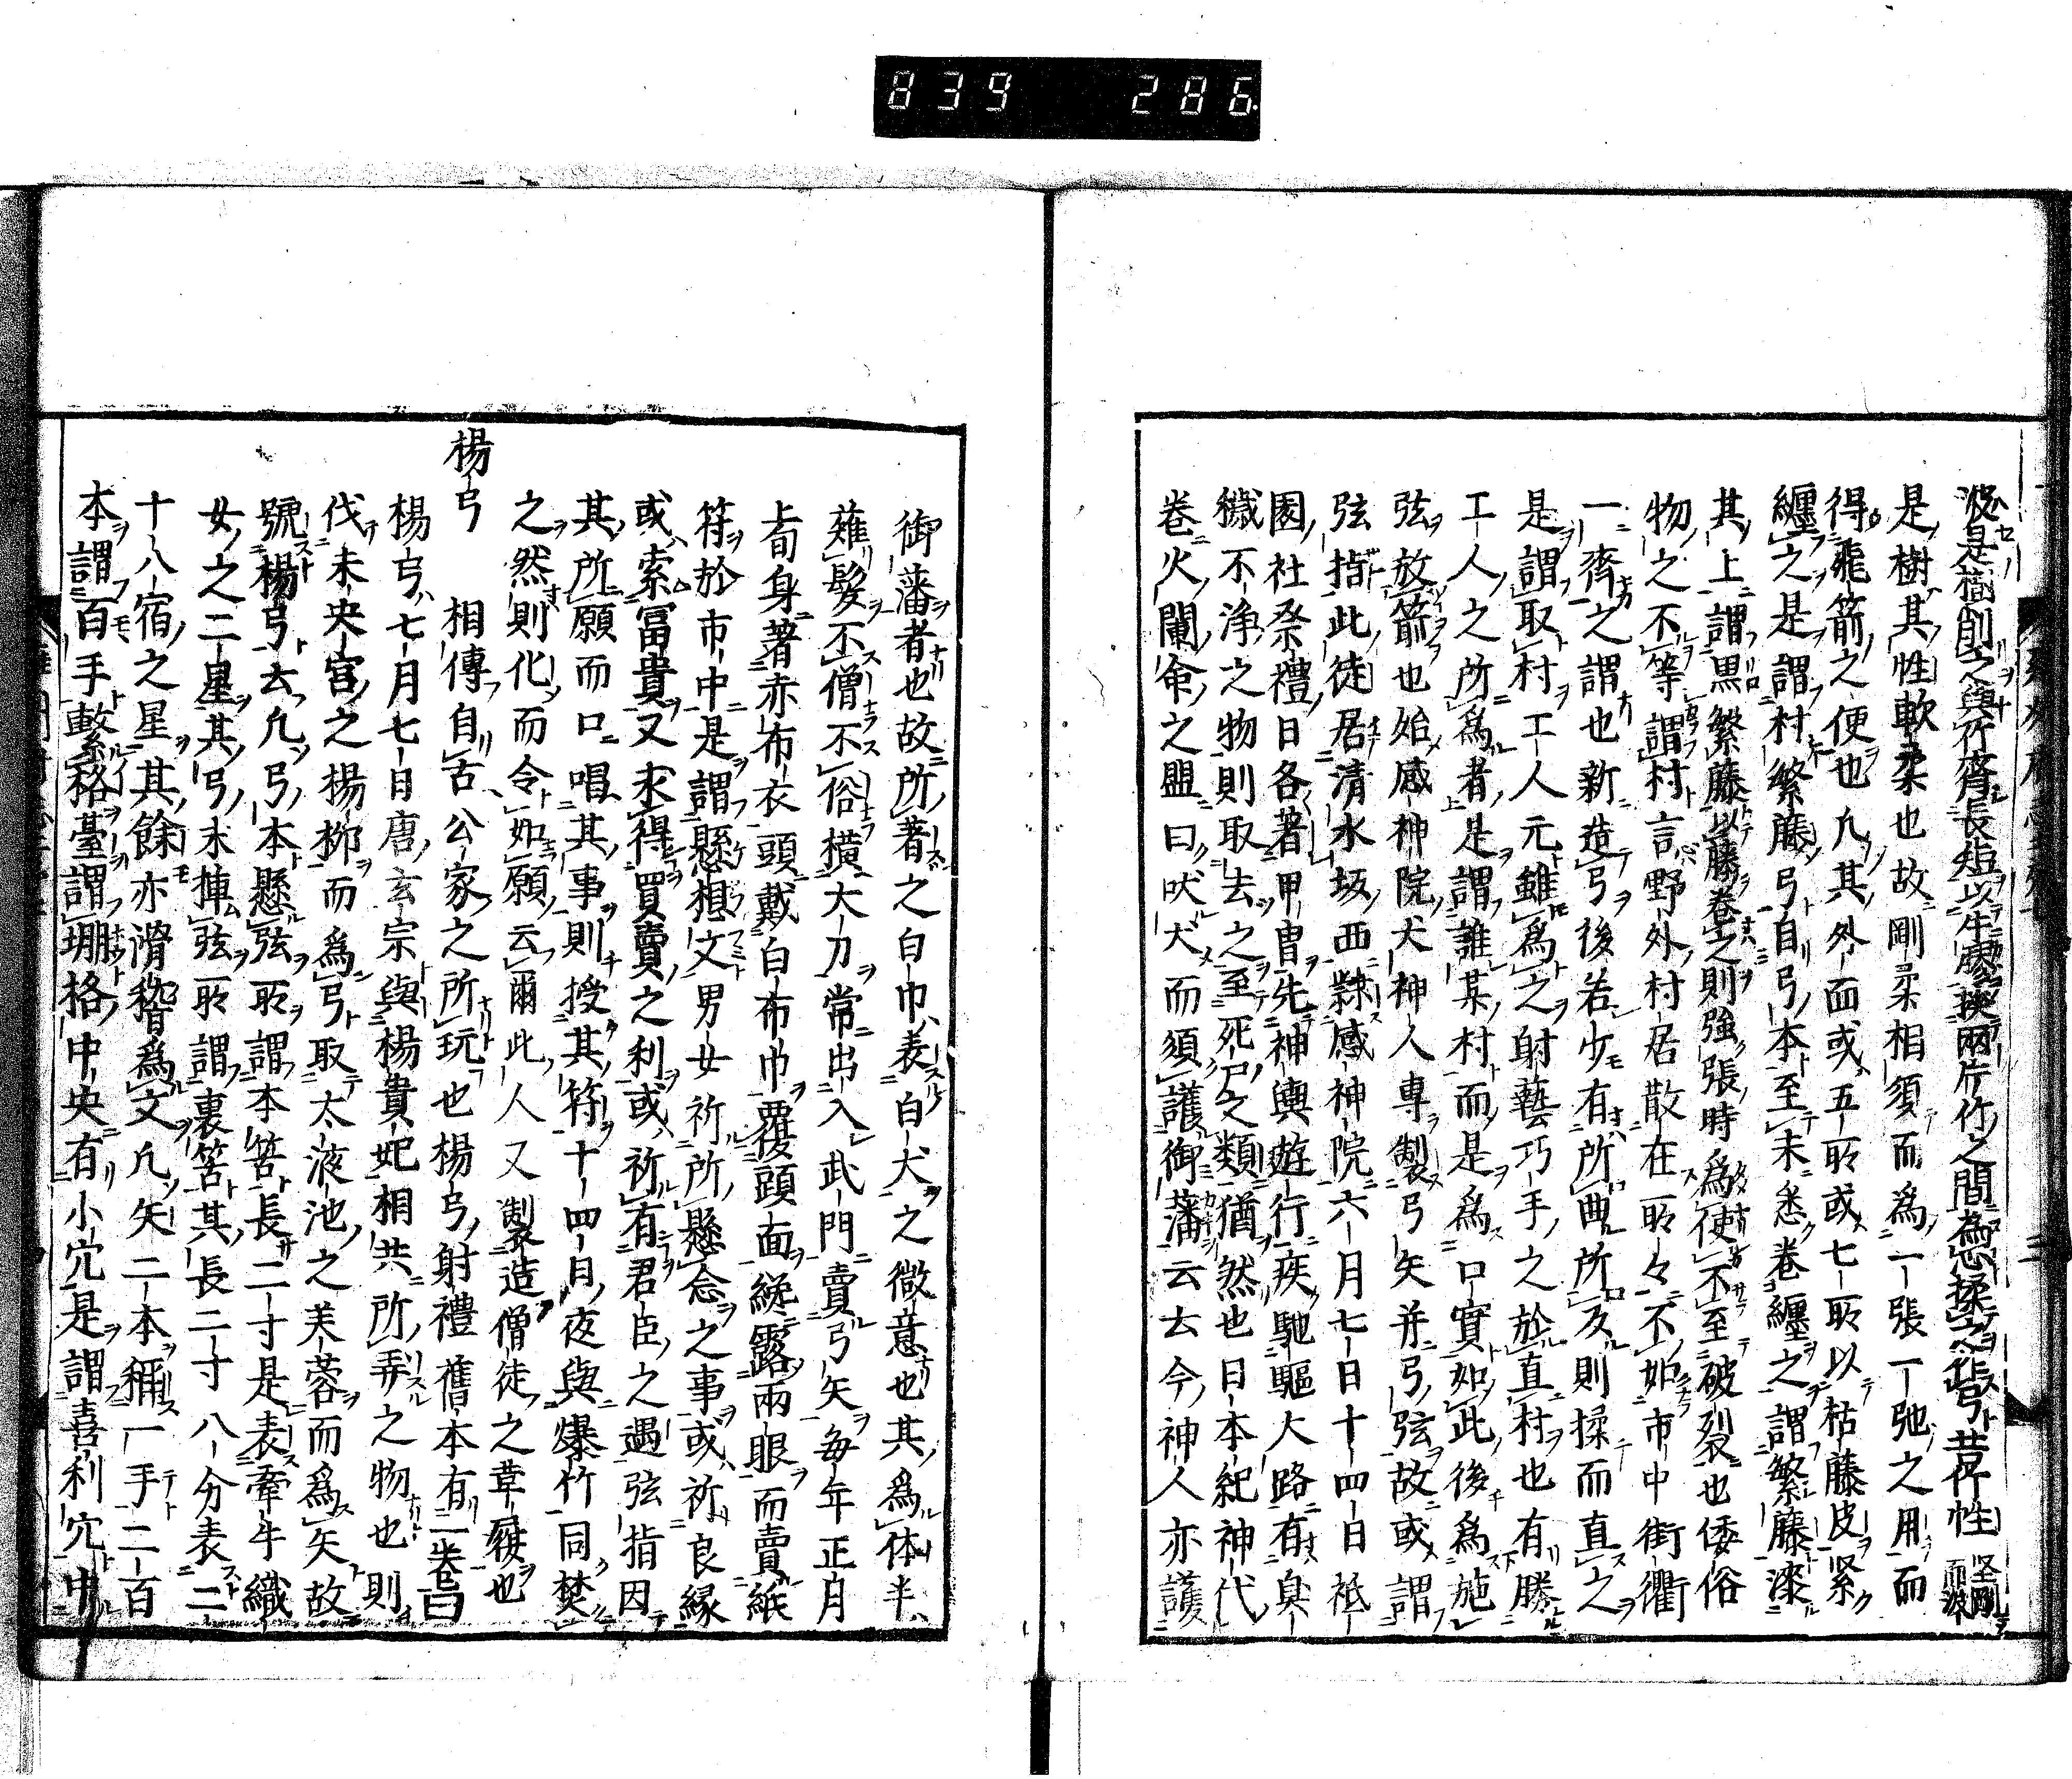 839 286
波是樹削之與竹齊長短以牛膠挾兩片竹之間為心揉之作弓昔竹性堅剛而波
是樹其性軟柔也故剛柔相須而爲一張一弛之用而
得飛箭之便也凡其外面或五所或七所以枯藤皮緊
纏之是謂村繁藤弓自弓本至末悉卷纏之謂繁藤漆
其上謂黒繁藤以藤卷之則強張時爲使不至破裂也倭俗
物之不等謂村言野外村居散在所々不如市中街衢
一齊之謂也新造弓後若少有所曲所反則揉而直之
是謂取村工人元雖爲之射藝巧手之於直村也有勝
工人之所爲者是謂誰某村而是爲口實如此後爲施
弦放箭也始感神院犬神人專製弓矢并弓弦故或謂
弦指此徒居清水坂西隷感神院六月七日十四日祇
園社祭禮日各著甲冑先神輿遊行疾馳驅大路有臭
穢不浄之物則取去之至死尸之類猶然也日本紀神代
卷火闌命之盟曰吠犬而須護御藩云云今神人亦護
御藩者也故所著之白巾表白犬之微意也其爲体半
薙髮不僧不俗横大刀常出入武門賣弓矢毎年正月
上旬身著赤布衣頭戴白布巾覆頭面纔露兩眼而賣紙
符於市中是謂懸想文男女祈所懸念之事或祈良縁
或索冨貴又求得買賣之利或祈有君臣之遇弦指因
其所願而口唱其事則授其符十四日夜與爆竹同焚
之然則化而令如願云爾此人又製造僧徒之草履也
楊弓 相傳自古公家之所玩也楊弓射禮舊本有一卷曰
楊弓七月七日唐玄宗與楊貴妃相共所弄之物也則
伐未央宮之楊柳而爲弓取太液池之芙蓉而爲矢故
號楊弓云凡弓本懸弦所謂本筈長二寸是表牽牛織
女之二星其弓末掛弦所謂裏筈其長二寸八分表二
十八宿之星其餘亦滑稽爲文凡矢二本稱一手二百
本謂百手繋格臺謂堋格中央有小穴是謂喜利穴中